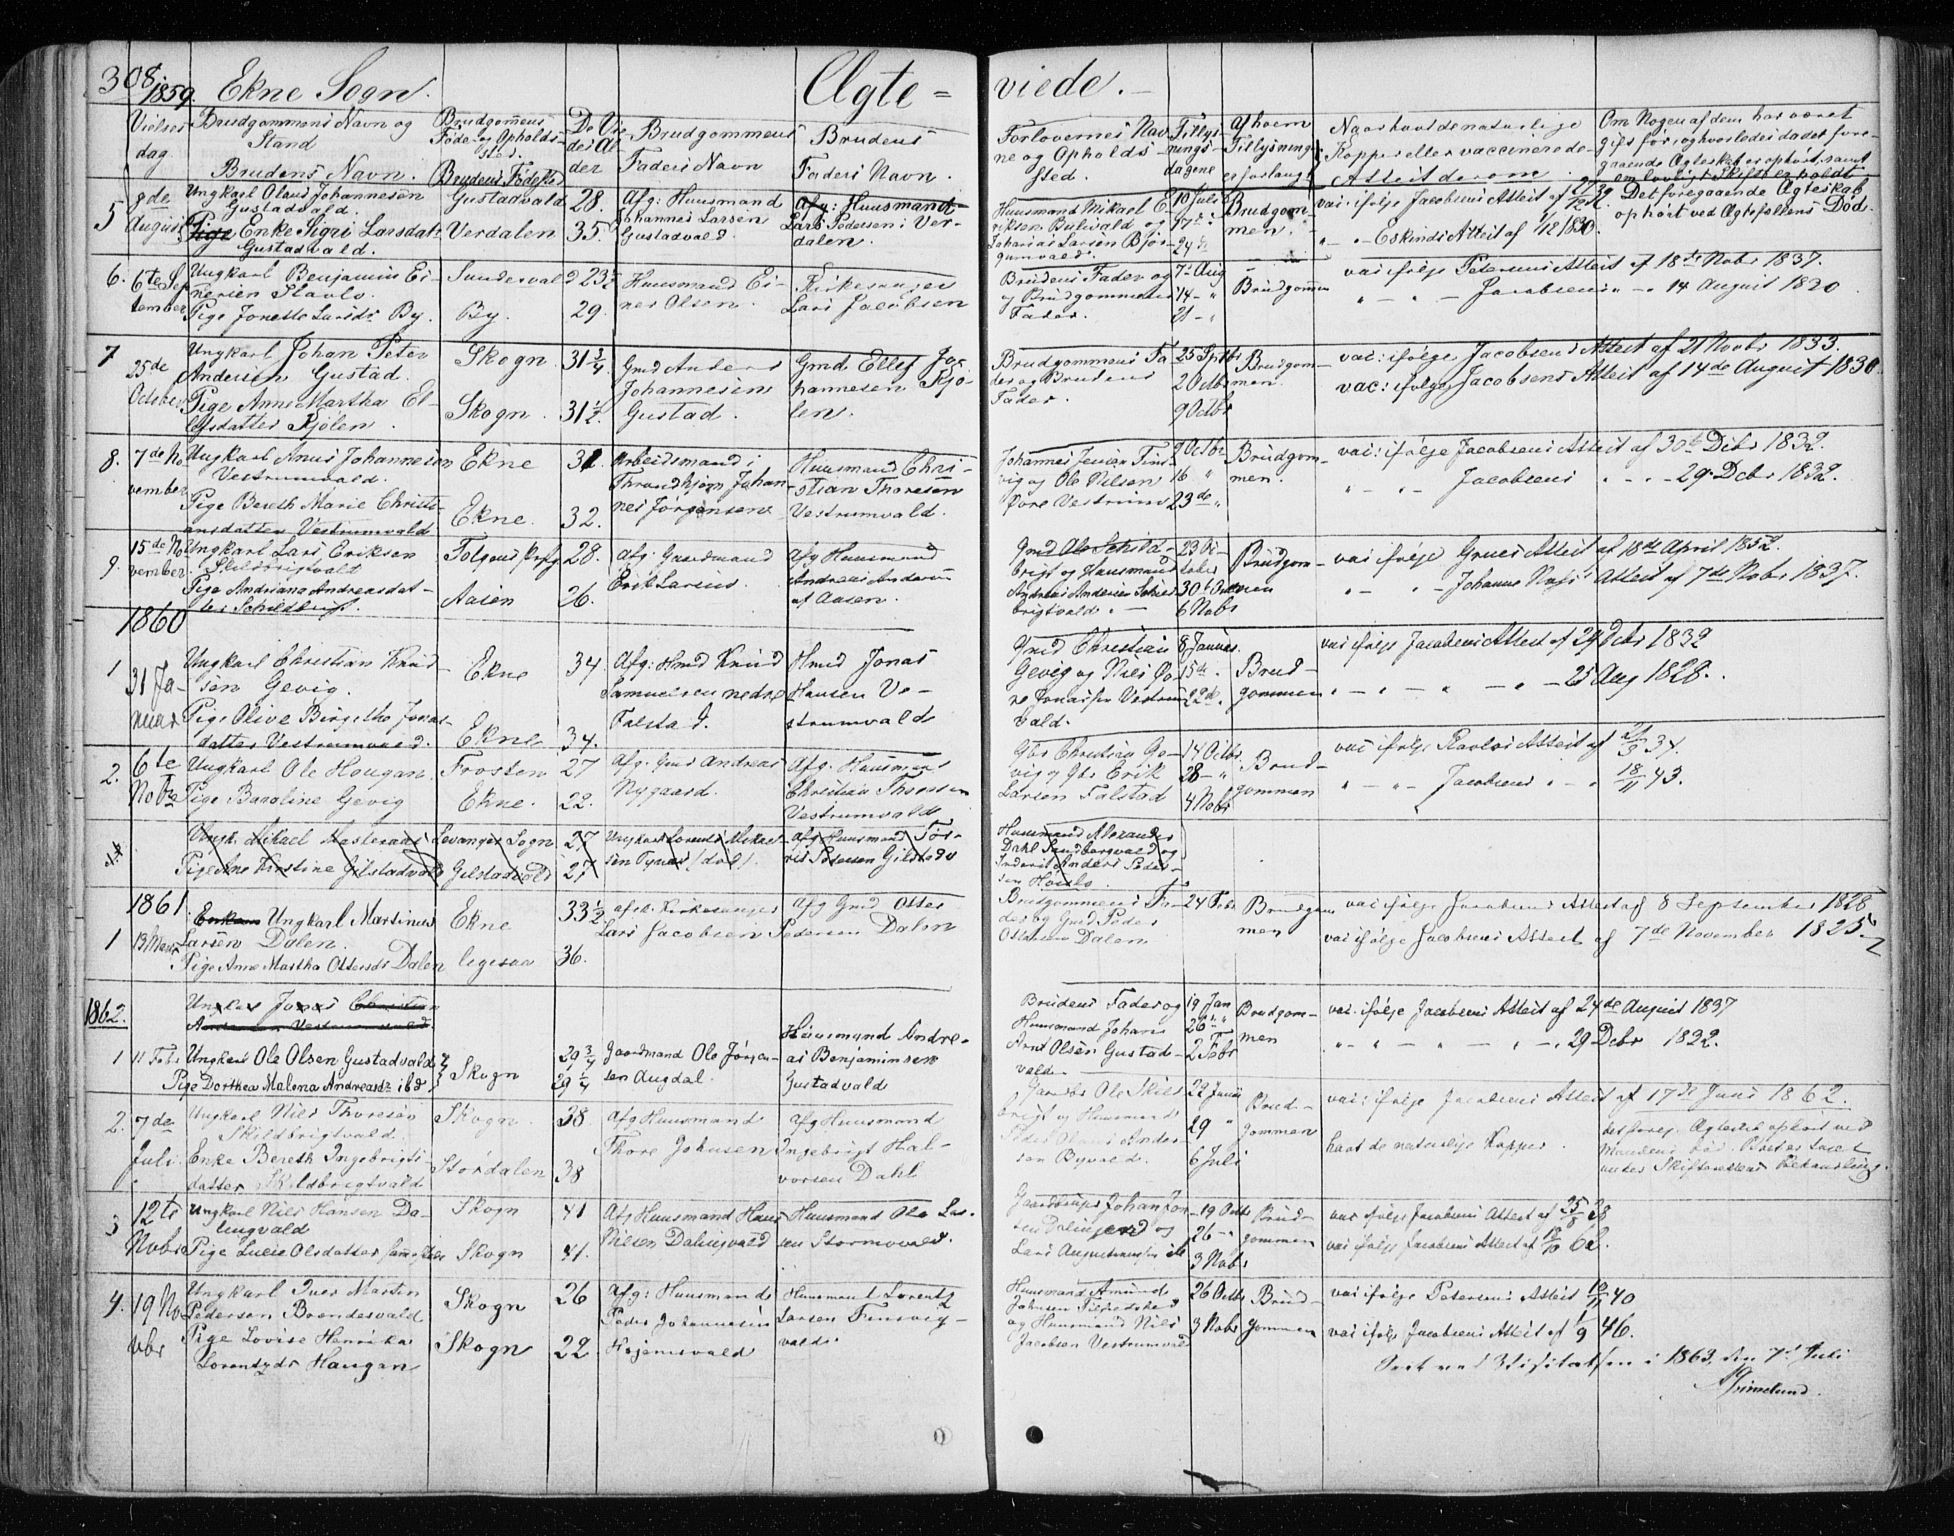 308
1859. Ekne Sogn. Ægte = viede.
Vielses dag
Brudgommens Navn og Stand
Brudens Navn.
Brudgommens Føde og Opholds-sted.
Brudens Fødested
De Vie-des Al-der
Brudgommens Faders Navn
Brudens Faders Navn.
Forlovernes Nav-ne og Opholds-sted.
Tillys-nings-dagene
Af hvem Tillysning er forlangt
Naar havt de naturlige Kopper eller vaccinerede Attest derom.
Om Nogen af dem har været gift før, og hvorledes da det fore-gaaende Ægteskab er ophørt, samt om lovligt Skifte er holdt
5 9de August
Ungkarl Olaus Johannesen Gustadvald.
Enke Sigri Larsdatr Gustadvald.
Gustadvald 28.
Verdalen 35.
Afg. Huusmand Johannes Larsen Gustadvald.
Afg. Huusmand Lars Pedersen i Ver-dalen.
Huusmand Mikael E-riksen Bulvald og Johannes Larsen
10 Juli
17de
24de
Brudgom-men.
vac: ifølge Jacobsens Attest af
" - Eskinds Attest af 1/12 1830.
Det foregaaende Ægteskab ophørt ved Ægtefellens Død.
6. 6te Sep-tember
Ungkarl Benjamin Ei-nersen Slavlo.
Pige Jonette Larsdr By.
Sundervald 23½
By. 29.
Huusmand Ei-ner Olsen.
Kirkesanger Lars Jacobsen
Brudens Fader og Brudgommens Fader.
7de Aug
14 - "
21 - "
Brudgommen
vac: ifølge Petersens Attest af 18de Nobr 1837.
" - " - Jacobsens " - " 14 August 1830
7 25de October
Ungkarl Johan Peter Andersen Gustad.
Pige Anne Martha El-lefsdatter Kjølen.
Skogn 31¾
Skogn. 31½
Gmd Anders Johannesen Gustad.
Gmd Ellef Jo-hannesen Kjø-len.
Brudgommens Fa-der og Brudens Fader.
25 Septbr
2 Octbr
9 Octbr
Brudgom-men.
vac: ifølge Jacobsens Attest af 21 Novbr 1833.
vac: ifølge Jacobsens Attest af 14de August 1830.
8. 7de No-vember
Ungkarl Anus Johannesen Vestrumvald.
Pige Bereth Marie Christi-ansdatter Vestrumvald
Ekne 31.
Ekne. 32.
Arbeidsmand i Throndhjem Johan-nes Jørgensen
Huusmand Chri-stian Thoresen Vestrumvald.
Johannes Jensen og Ole Nilsen Vestrum
9 Octbr
16 "
23de "
Brudgom-men.
vac: ifølge Jacobsens Attest af 30te Decbr 1832.
" - " - Jacobsens " - " - 29 Decbr 1832.
9. 15de No-vember.
Ungkarl Lars Eriksen Skildbrigtvald
Pige Andriana Andreasdat-ter Schildbrigt
28.
Aasen 26.
Afg. Gaardmand Erik Larsen.
Afg Huusmand Andreas Andersen af Aasen.
Gmd Ole Schild-brigt og Huusmand Andreas Andersen Schild-brigtvald.
23 Oc-tober
30te
6 Nobr
Brudgom-men
vac: ifølge Grues Attest af 18de April 1852.
" - " - Attest af 7de Nobr 1837.
1860
1 31 Ja-nuar
Ungkarl Christian Knud-sen Gevig.
Pige Olive Birgitha Jonas-datter Vestrumvald.
Ekne 34
Ekne 34.
Afg: Hmd Knud Samuelsen nedre Falstad.
Hmd Jonas Hansen Ve-strumvald
Gmd Christian Gevig og Nils Jonassen Vestrum-vald.
8 Januar.
15de "
22de "
Brud-gommen
vac: ifølge Jacobsens Attest af 29 Decbr 1832
" - " - " - " - 25 Aug 1828.
2. 6te Nobr
Ungkarl Ole Hougan
Pige Baroline Gevig
Frosten 27
Ekne. 22.
Afg. Gmd Andreas Nygaard.
Afg. Huusmand Christian Thoresen Vestrumvald
Gbr Christian Ge-vig og Gbr Erik Larsen Falstad
14 Octbr
28 - "
4 Nobr
Brud-gommen
vac: ifølge Attest af 21/9 34.
" - " - Jacobsens " - " 18/11 43.
Ungk. Mikael
Pige Ane Kirstine Gilstadvald
Levanger Sogn 27
Gilstadvald 27
Ungkarl Lorents Mikael-sen
Afg Huusmand Pedersen Gilstad
Huusmand Alexander Dahl og Anders Peder-sen
1861
1
Enkem Ungkarl Martinus Larsen Dalen.
Pige Anne Martha Ottersdr Dalen
Ekne 33½
ligesaa 36.
afsk. Kirkesanger Lars Jacobsen
Afg Gmd Otter Pedersen Dalen
Brudgommens Fa-der og Gmd Peder Ottersen Dalen
24 Febr
Brudgom-men
vac: ifølge Jacobsens Attest af 8 September 1828
vac: ifølge Jacobsens Attest af 7de November 1825
1862.
Ungkar Jonas Christian Andersen Vestrumvald.
1 11 Febr
Ungkarl Ole Olsen Gustadvald
Pige Dorthea Malena Andreasdr ibd
Skogn
29¾
29¼
Gaardmand Ole Jørgen-sen Augdal.
Huusmand Andre-as Benjaminsen Gustadvald
Brudens Fader og Huusmand Johan Arnt Olsen Gustad-vald
19 Jan
26 "
2 Febr
Brudgom-men
vac. ifølge Jacobsens Attest af 24de August 1837
" - " - " - " - 29 Decbr 1832.
2. 7de Juli
Ungkarl Nils Thoresen Skildbrigtvald.
Enke Bereth Ingebrigts-datter Skildbrigtvald
Skogn. 38
Stordalen 38
Afg Huusmand Thore Johnsen
Afg Huusmand Ingebrigt Hal-vorsen Dahl
Gaardbr Ole Skild-brigt og Huusmand Peder Andersen Byvald.
22 Juni
29 "
6 Juli
Brud-gommen
vac: ifølge Jacobsens Attest af 17de Juni 1862.
havt de naturlige Kopper.
det foreg. Ægteskab ophørt ved Mandens Død. Boet er taget under Skifterettens Behandling.
3 12te Nobr
Ungkarl Nils Hansen Da-lingvald
Pige Lucie Olsdatter samesteds
Skogn 41
Skogn 41.
Afg Huusmand Hans Nilsen Dalingvald
Huusmand Ole Lar-sen Stormovald.
Johan Dalingen og Lars Augustinussen ibd
19 Octbr
26 - "
3 Nobr
Brud-gommen
vac ifølge Jacobsens Attest af 25/8 28
vac ifølge Jacobsens Attest af 19/10 62.
4. 19 No-vbr
Ungkarl Iver Martin Pedersen Brendesvald
Pige Lovise Henrikke Lorentzdr Haugan
Skogn 26
Skogn 22
Afg: Huusmand Peder Johannesen Højemsvald
Huusmand Lorentz Larsen Finsvig-vald
Huusmand Amund Johnsen og Huusmand Nils Jacobsen Vestrumvald
26 Octbr
3 Nobr
Brud-gommen
vac ifølge Petersens Attest 19/11 40
vac ifølge Jacobsens Attest af 1/9 46.
Seet ved Visitatsen i 1863 den 7de Juli
Grimelund.